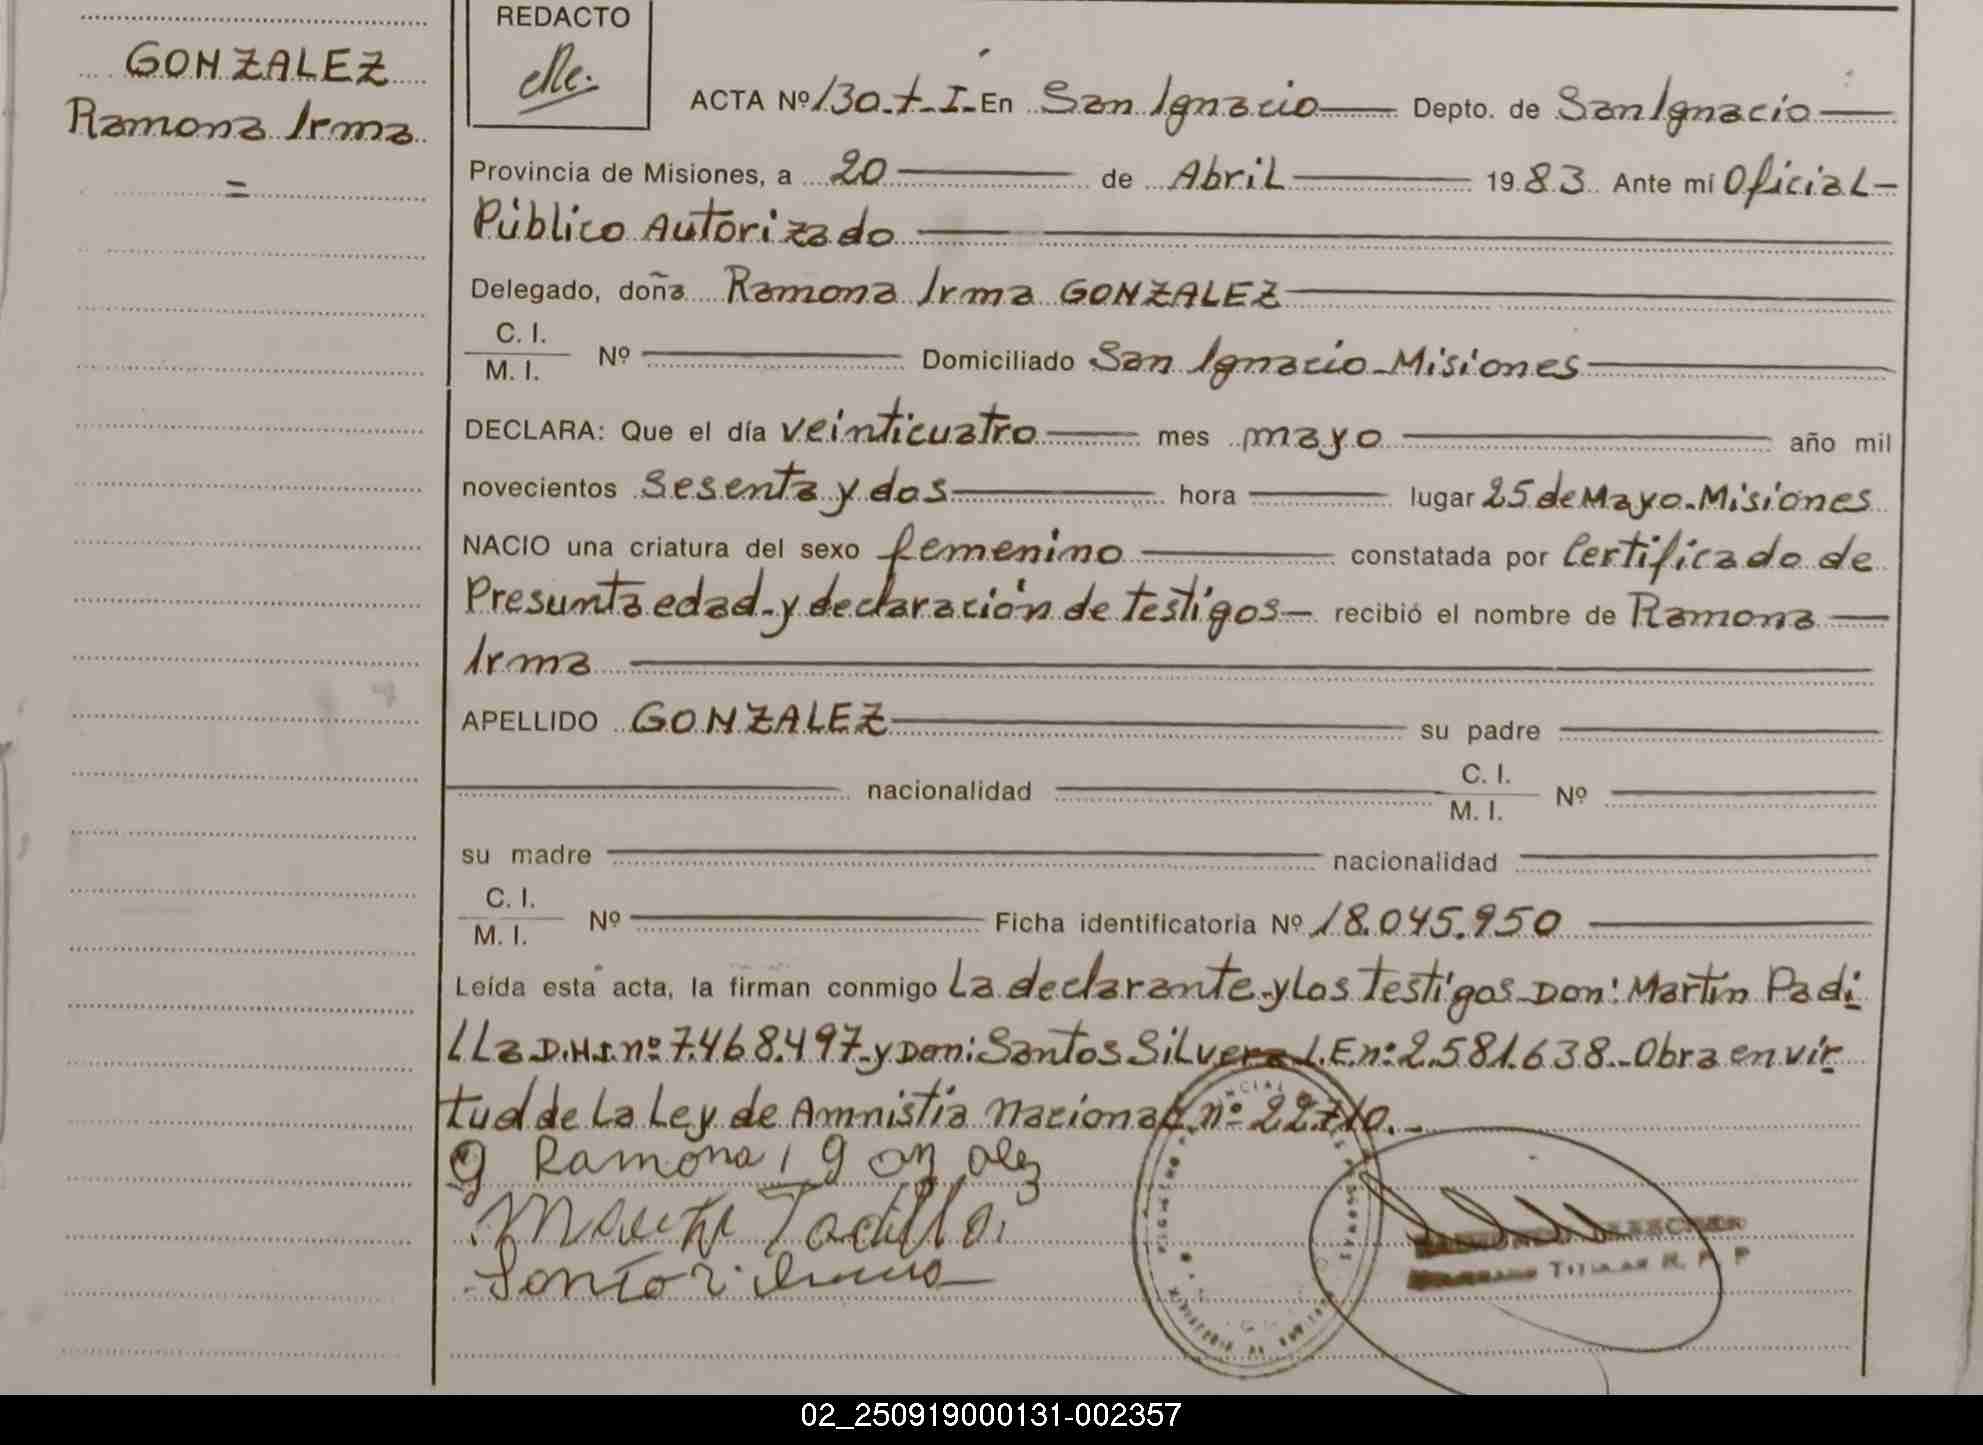 GONZALEZ
Ramona Irma
=
REDACTO
ACTA Nº 130.t-I- En San Ignacio Depto. de San Ignacio
Provincia de Misiones, a 20 de Abril 1983. Ante mi Oficial
Público Autorizado
Delegado, doña Ramona Irma GONZALEZ
C. I.
M. I. Nº Domiciliado San Ignacio-Misiones
DECLARA: Que el día veinticuatro mes mayo año mil
novecientos sesenta y dos hora lugar 25 de Mayo-Misiones
NACIO una criatura del sexo femenino constatada por Certificado de
Presunta edad-y declaración de testigos- recibió el nombre de Ramona
Irma
APELLIDO GONZALEZ su padre
nacionalidad C. I.
M. I. Nº
su madre nacionalidad
C. I.
M. I. Nº Ficha identificatoria Nº 18.045.950
Leída esta acta, la firman conmigo La declarante-y Los testigos-Don: Martin Padi
LLa D.N.I. nº 7.468.497-y Don: Santos Silvera L.E. nº: 2.581.638.-Obra en vir
tud de La Ley de Amnistia Nacional nº 22710.-
Ramona I gonzalez
TITULAR R. P. P
02_250919000131-002357